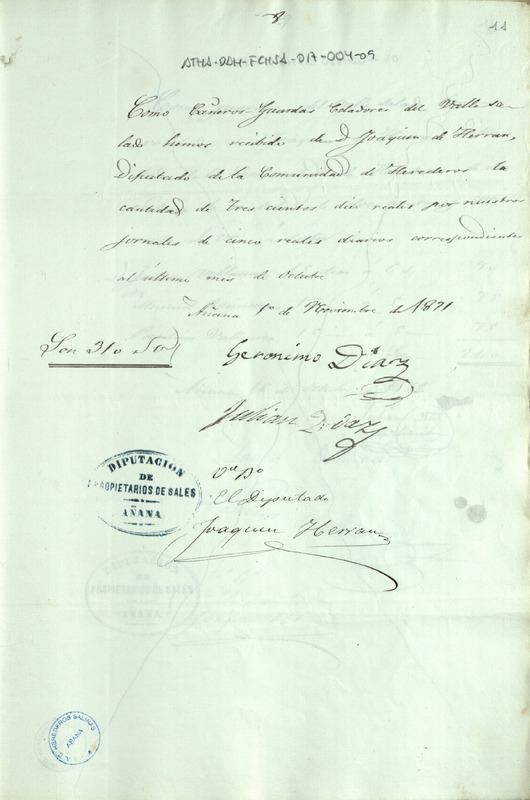 8
11
ATHA-DAH-FCHSA-D17-004-09
Como Cañeros Guardas Celadores del Valle sa-
lado hemos recibido de D Joaquin de Herran,
Diputado de la Comunidad de Herederos la
cantidad de tres cientos diez reales por nuestros
jornales de cinco reales diarios correspondientes
al último mes de Octubre
Añana 1º de Noviembre de 1871
Son 310
Geronimo Diaz
Julian Diaz
Vº Bº
El Diputado
Joaquin Herran
DIPUTACION
DE
PROPIETARIOS DE SALES
AÑANA
HEREDEROS SALINAS
AÑANA